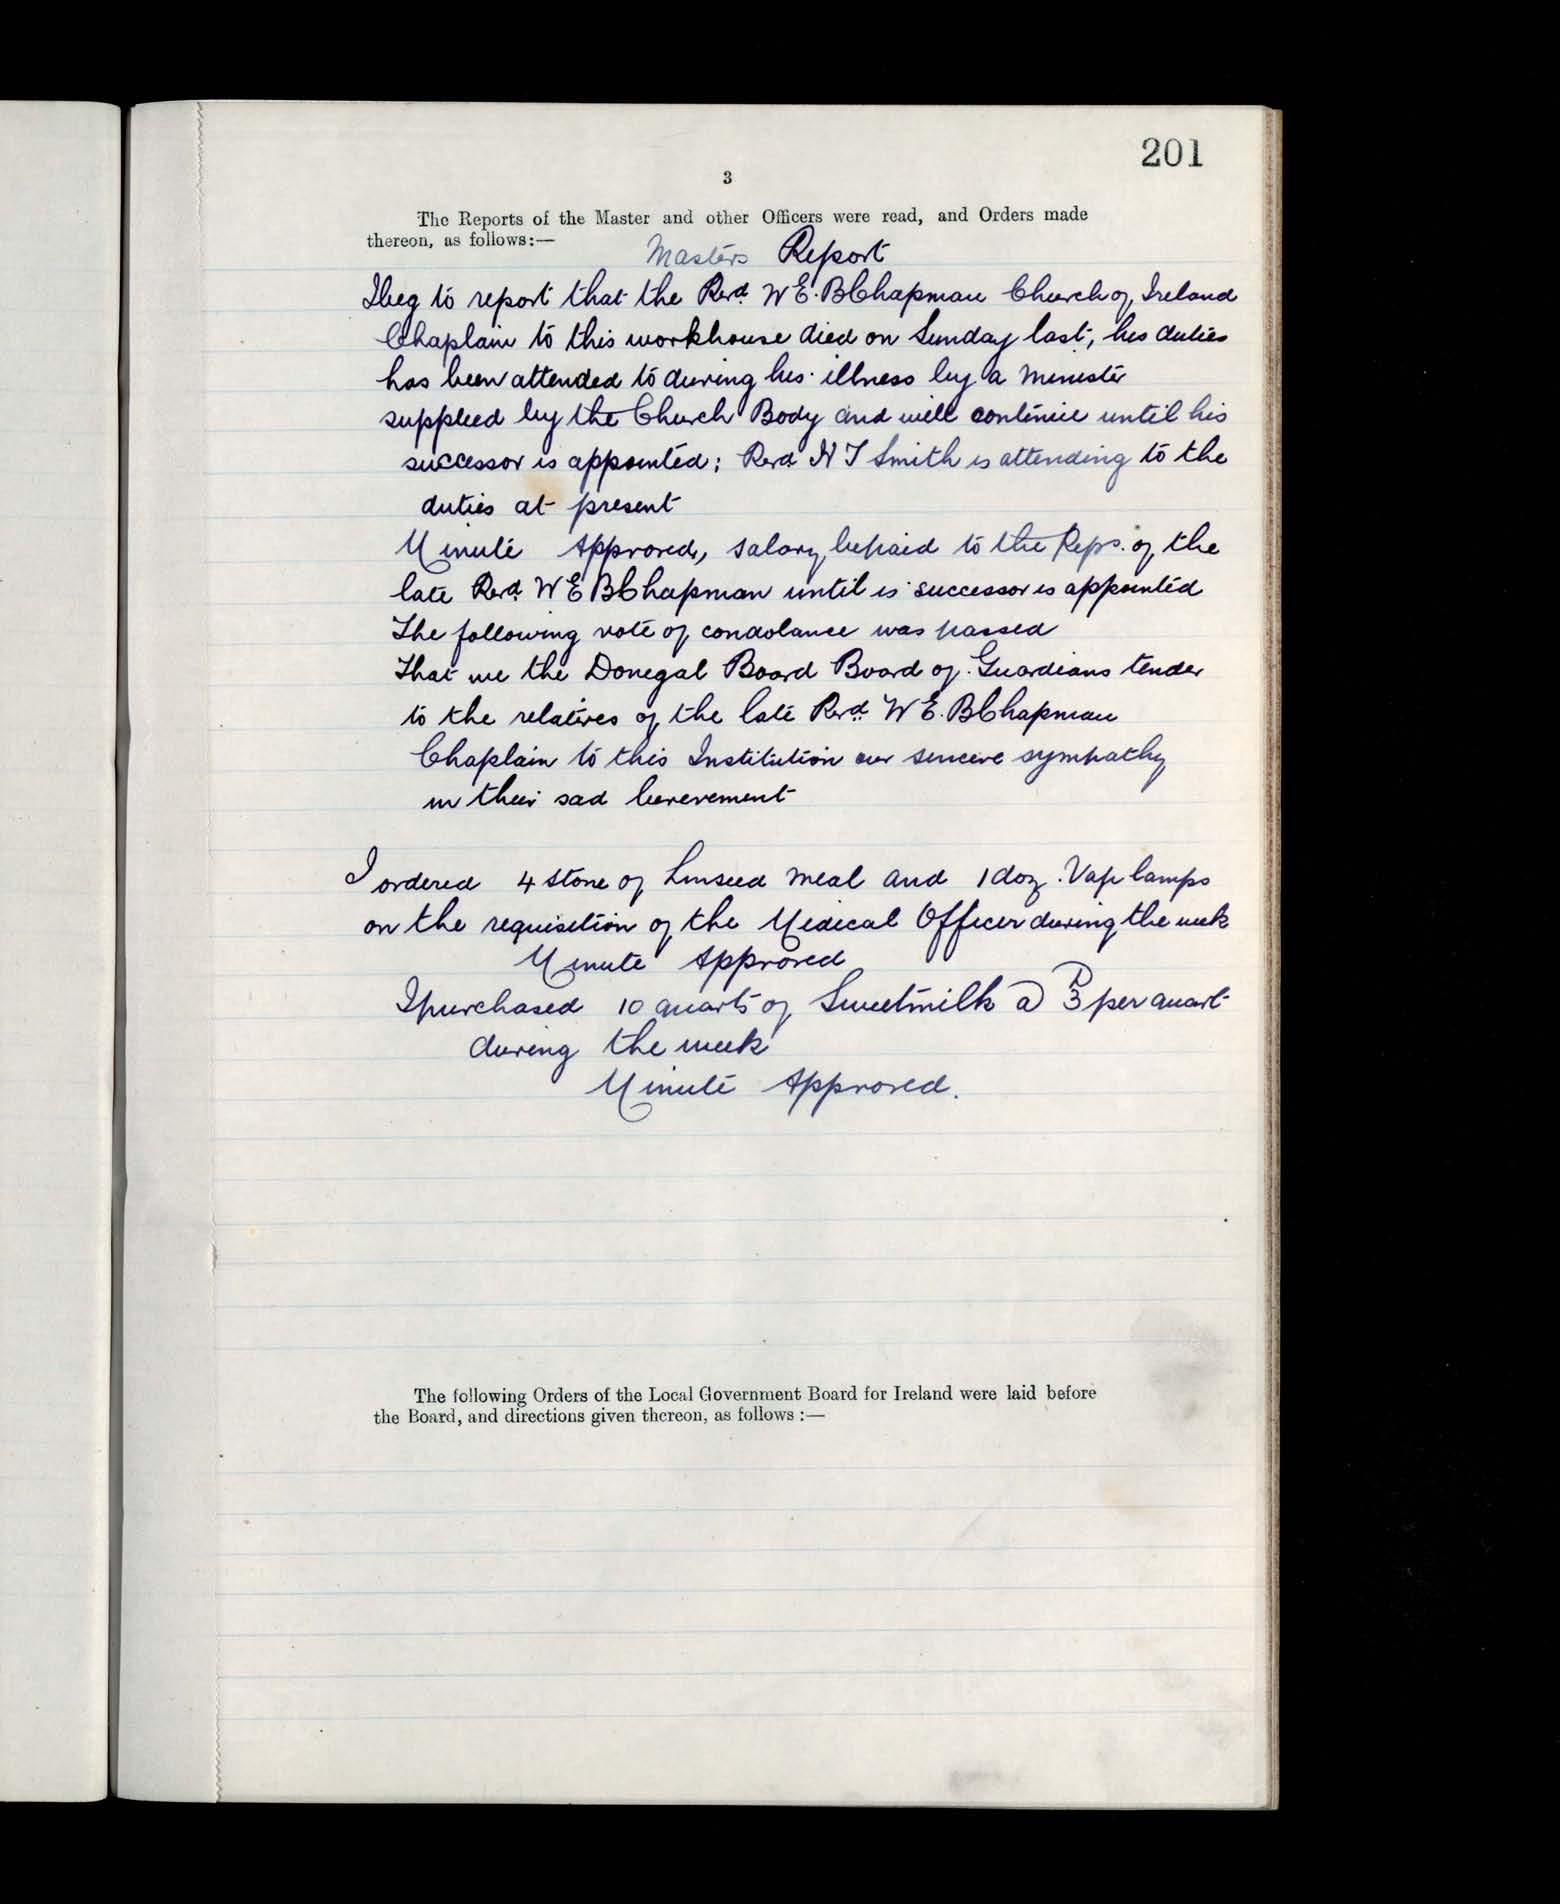 201
3
The Reports of the Master and other Officers were read, and Orders made
thereon, as follows:—
Masters Report
I beg to report that the Revd. W E. B Chapman Church of Ireland
Chaplain to this workhouse died on Sunday last, his duties
has been attended to during his illness by a Minister
supplied by the Church Body and will continue until his
successor is appointed; Revd Smith is attending to the
duties at present
Minute Approved, salary be paid to the Reps. of the
late Revd. W E B Chapman until is successor is appointed
The following vote of condolance was passed
That we the Donegal Board Board of Guardians tender
to the relatives of the late Revd. W E. B Chapman
Chaplain to this Institution our sincere sympathy
in their sad berevement
I ordered 4 stone of Linseed meal and 1 doz. Vap lamps
on the requisition of the Medical Officer during the week
Minute Approved
I purchased 10 quarts of Sweetmilk a 3 per quart
during the week
Minute Approved.
The following Orders of the Local Government Board for Ireland were laid before
the Board, and directions given thereon, as follows :—